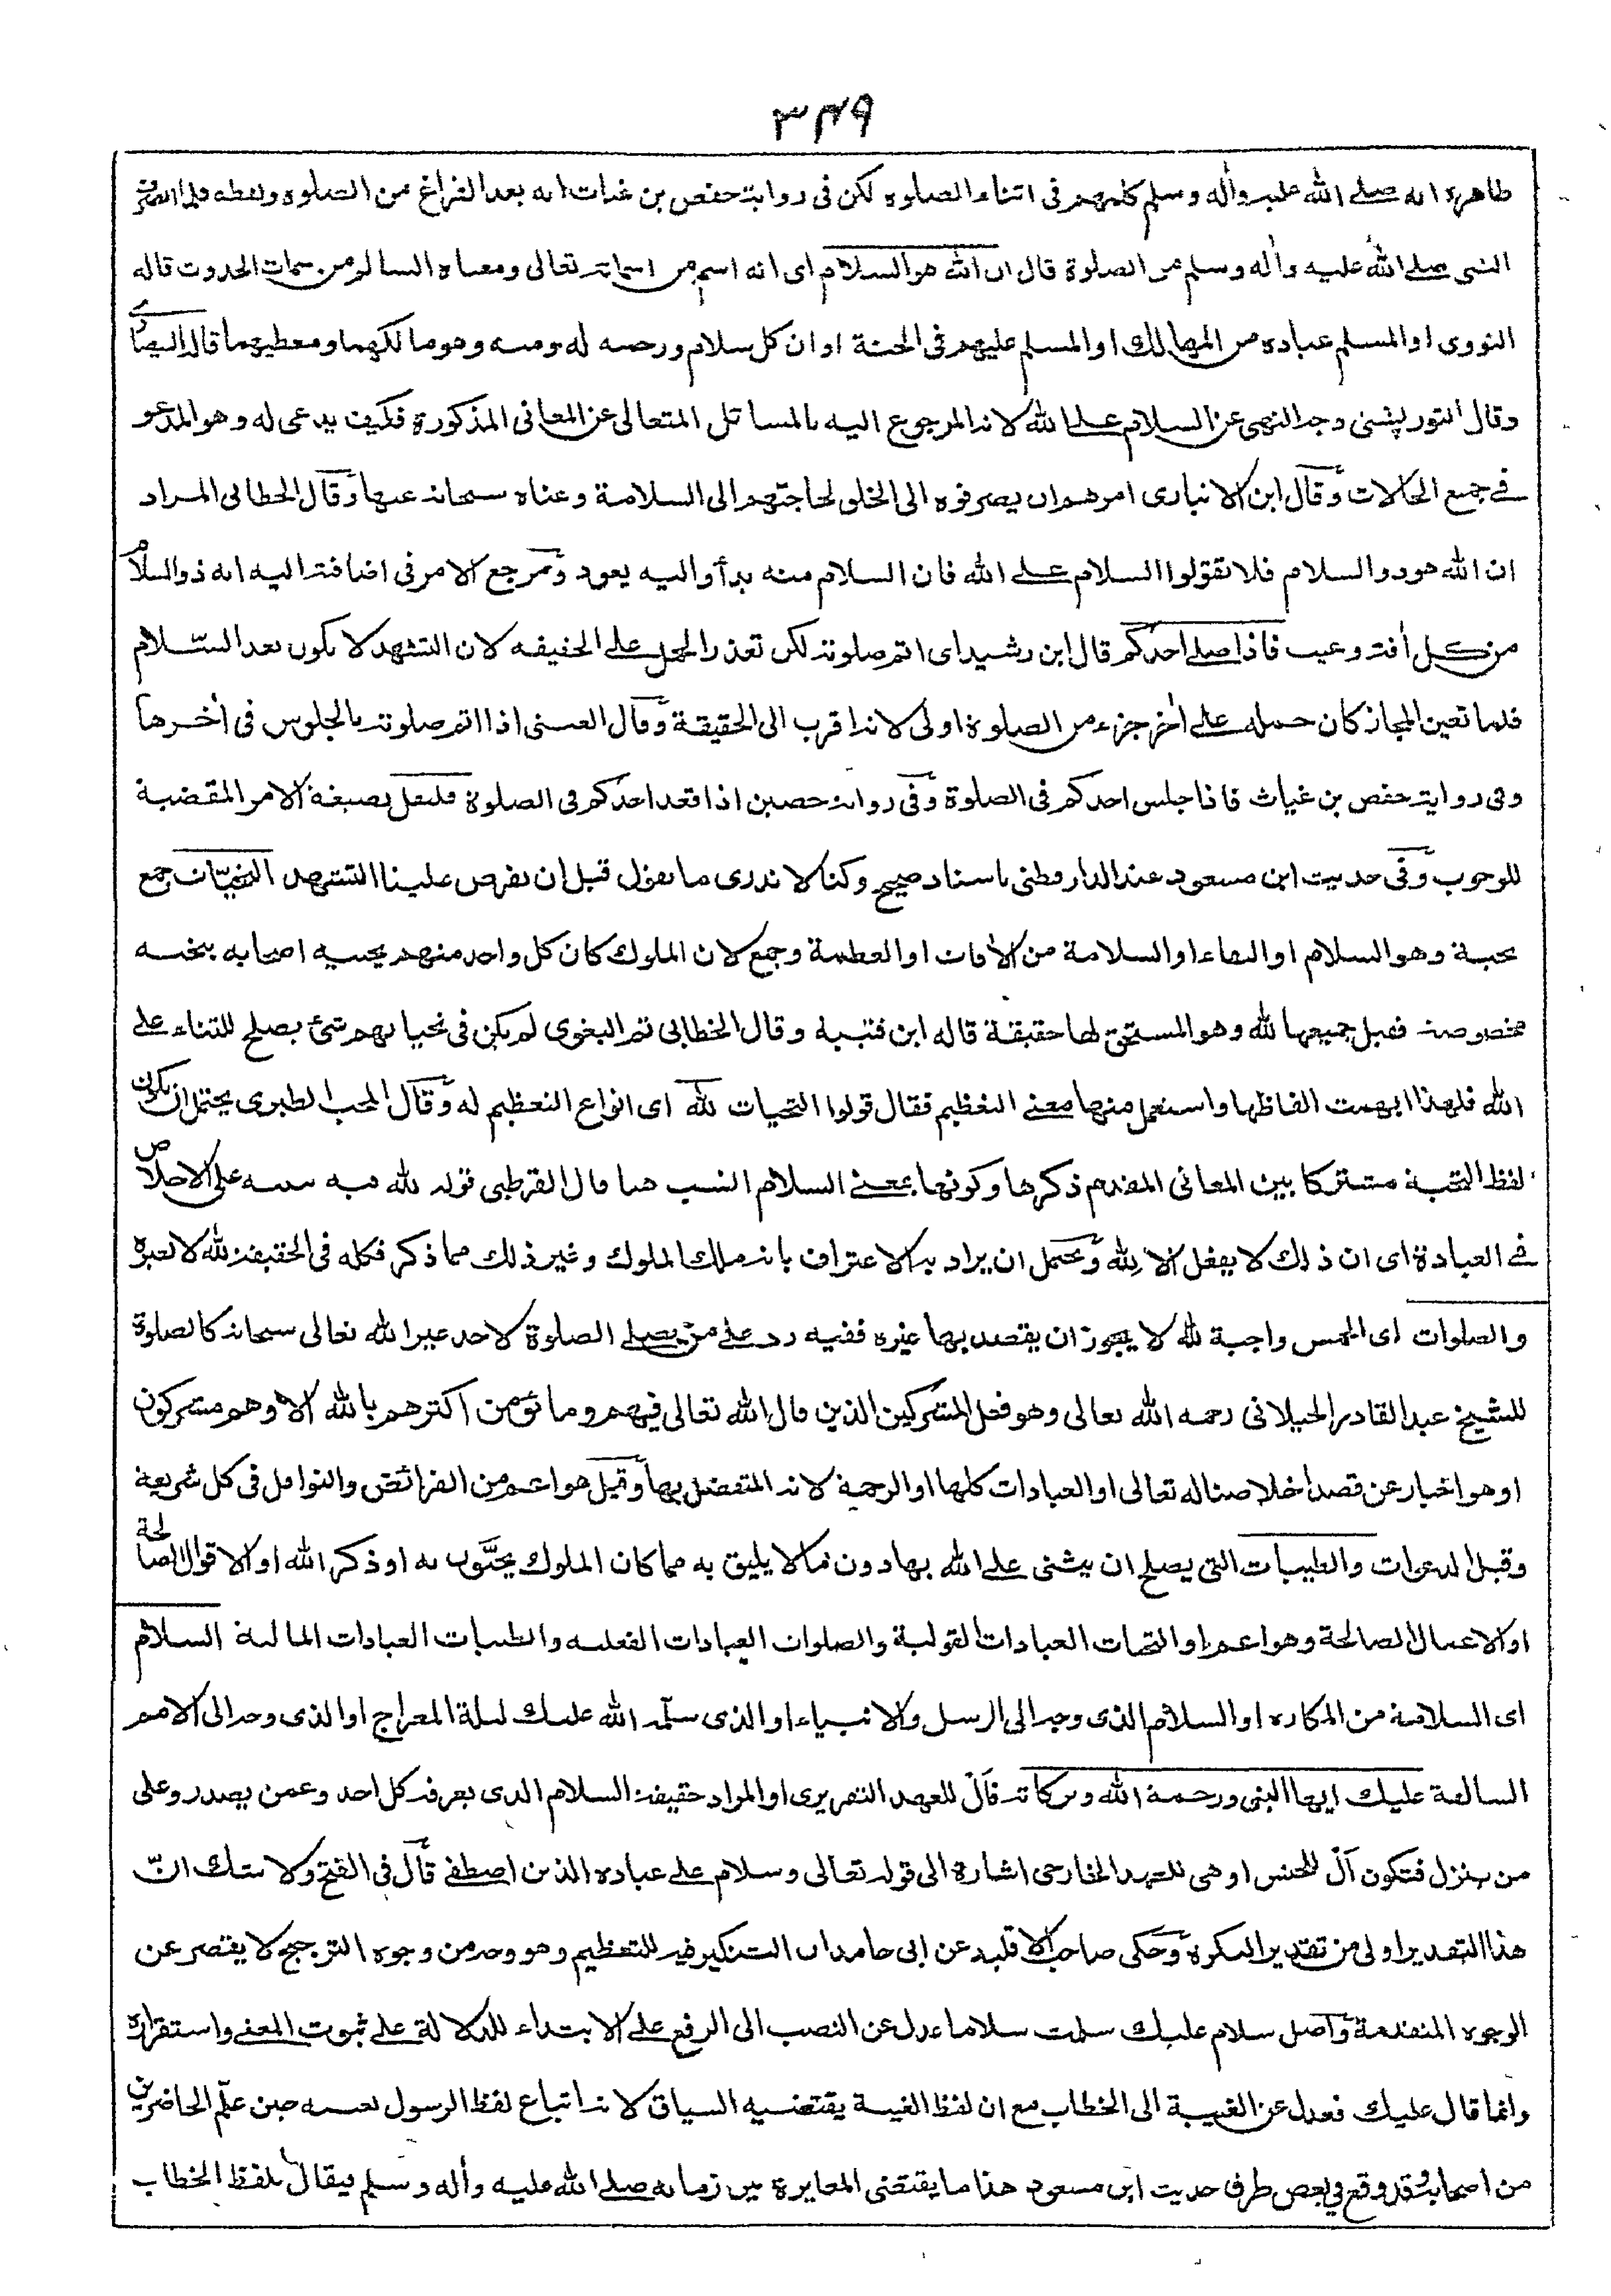 ٣٤٩
ظاهره انه صلے الله عليه وأله وسلم كلمهم فى اثناء الصلوة لكن فى رواية حفص بن غياث انه بعد الفراغ من الصلوة ولفظه فلما انصرف
النبى صلے الله عليه وأله وسلم من الصلوة قال ان الله هو السلام اى انه اسم من اسمائه تعالى ومعناه السالم من سمات الحدوث قاله
النووى او المسلم عباده من المهالك او المسلم عليهم فى الجنة او ان كل سلام ورحمة له ومنه وهو مالكهما ومعطيهما قاله البيضاوے
وقال التوربشتى وجه النهى عن السلام على الله لانه المرجوع اليه بالمسائل المتعالى عن المعانى المذكورة فكيف يدعى له وهو المدعو
فے جميع الحالات وقال ابن الانبارى امرهم ان يصرفوه الى الخلق لحاجتهم الى السلامة وغناه سبحانه عنها وقال الخطابى المراد
ان الله هو ذو السلام فلا تقولوا السلام علے الله فان السلام منه بدأ واليه يعود ومرجع الامر فى اضافته اليه انه ذو السلام
من كل أفة وعيب فاذا صلے احدكم قال ابن رشيد اى اتم صلوته لكن تعذر الحمل على الحقيقة لان التشهد لا يكون بعد السّلام
فلما تعين المجاز كان حمله علے أخر جزء من الصلوة اولى لانه اقرب الى الحقيقة وقال العينى اذا اتم صلوته بالجلوس فى أخرها
وفى رواية حفص بن غياث فاذا جلس احدكم فى الصلوة وفى رواية حصين اذا قعد احدكم فى الصلوة فليقل بصيغة الامر المقتضية
للوجوب وفى حديث ابن مسعود عند الدارقطنى باسناد صحيح وكنا لا ندرى ما نقول قبل ان يفرض علينا التشهد التحيّات جمع
تحية وهو السلام او البقاء او السلامة من الأفات او العظمة وجمع لان الملوك كان كل واحد منهم يحييه اصحابه بتحية
مخصوصة فقيل جميعها لله وهو المستحق لها حقيقة قاله ابن قتيبة وقال الخطابى ثم البغوى لم يكن فى تحياتهم شئ يصلح للثناء علے
الله فلهذا ابهمت الفاظها واستعمل منها معنے التعظيم فقال قولوا التحيات لله اى انواع التعظيم له وقال المحب الطبرى يحتمل ان يكون
لفظ التحية مشتركا بين المعانى المقدم ذكرها وكونها بمعنے السلام انسب هنا قال القرطبى قوله لله فيه تنبيه على الاخلاص
فے العبادة اى ان ذلك لا يفعل الا لله ويحتمل ان يراد به الاعتراف بانه ملك الملوك وغير ذلك مما ذكر فكله فى الحقيقة لله لا لغيره
والصلوات اى الخمس واجبة لله لا يجوز ان يقصد بها غيره ففيه رد على من يصلے الصلوة لاحد غير الله تعالى سبحانه كالصلوة
للشيخ عبد القادر الجيلانى رحمه الله تعالى وهو فعل المشركين الذين قال الله تعالى فيهم وما يؤمن اكثرهم بالله الا وهم مشركون
او هو اخبار عن قصد اخلاصنا له تعالى او العبادات كلها او الرحمة لانه المتفضل بها وقيل هو اعم من الفرائض والنوافل فى كل شريعة
وقيل الدعوات والطيبات التى يصلح ان يثنى علے الله بها دون ما لا يليق به مما كان الملوك يحيّون به او ذكر الله او الاقوال الصالحة
او الاعمال الصالحة وهو اعم او التحيات العبادات القولية والصلوات العبادات الفعلية والطيبات العبادات المالية السلام
اى السلامة من المكاره او السلام الذى وجه الى الرسل والانبياء او الذى سلّمه الله عليك ليلة المعراج او الذى وجه الى الامم
السالفة عليك ايها النبى ورحمة الله وبركاته فأل للعهد التقريرى او المراد حقيقة السلام الذى يعرفه كل احد وعمن يصدر وعلى
من ينزل فتكون أل للجنس او هى للعهد الخارجى اشارة الى قوله تعالى وسلام على عباده الذين اصطفے قال فى الفتح ولا شك انّ
هذا التقدير اولى من تقدير النكرة وحكى صاحب الاقليد عن ابى حامد ان التنكير فيه للتعظيم وهو وجه من وجوه الترجيح لا يقتصر عن
الوجوه المتقدمة وأصل سلام عليك سلمت سلاما عدل عن النصب الى الرفع على الابتداء للدلالة على ثبوت المعنے واستقراره
وانما قال عليك فعدل عن الغيبة الى الخطاب مع ان لفظ الغيبة يقتضيه السياق لانه اتباع لفظ الرسول بعينه حين علّم الحاضرين
من اصحابه وقد وقع فى بعض طرق حديث ابن مسعود هذا ما يقتضى المغايرة بين زمانه صلے الله عليه وأله وسلم فيقال بلفظ الخطاب